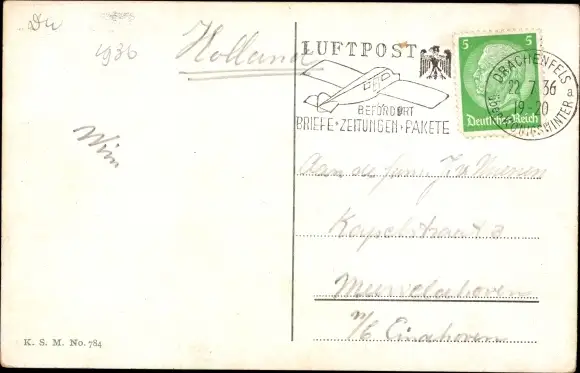 Du
1936
Holland
Wim
K. S. M. No. 784
LUFTPOST
BEFÖRDERT
BRIEFE·ZEITUNGEN·PAKETE
5 5
Deutsches Reich
DRACHENFELS
22.7.36
19-20
a
KÖNIGSWINTER
Aan de fam.
Kapelstraat 43
n/b